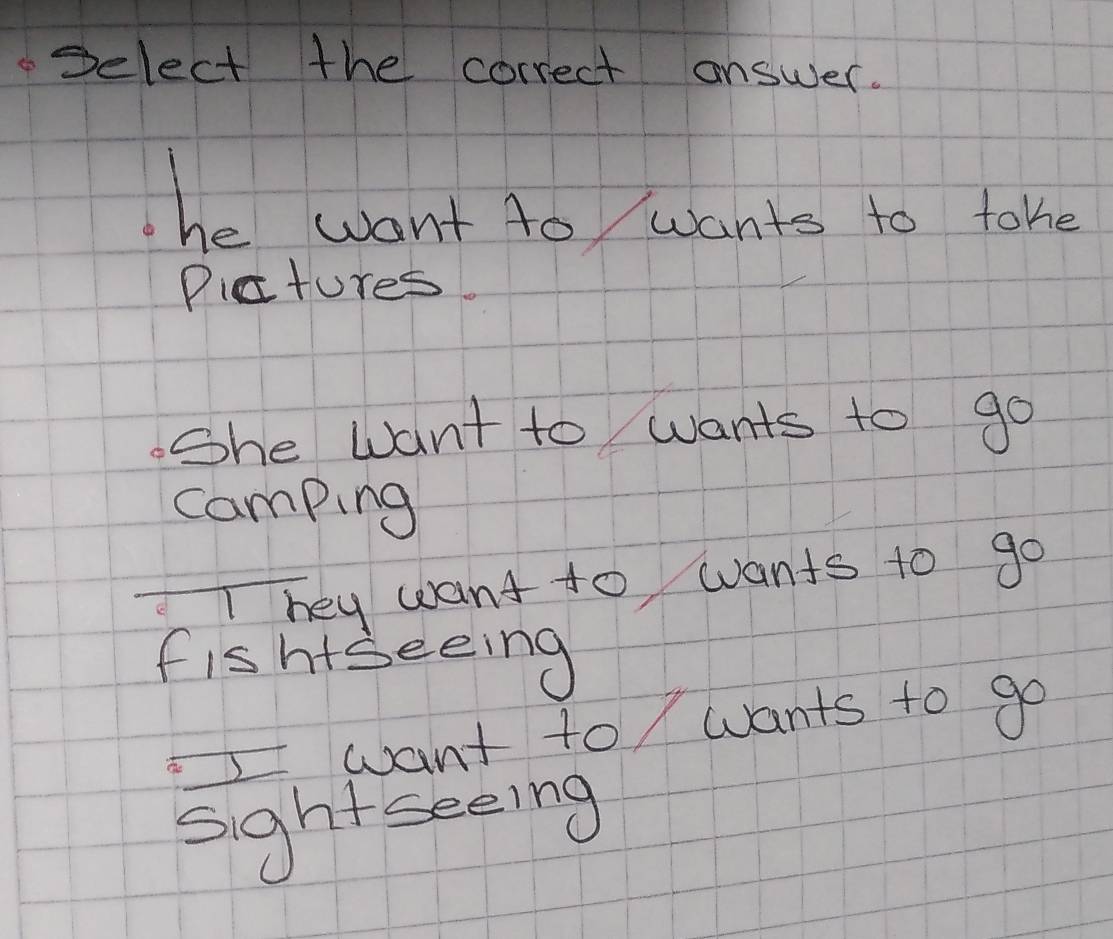 Select the correct answer.
he want to / wants to take
Pictures.
She want to / wants to go
camping
They want to / wants to go
fishtseeing
I want to / wants to go
sightseeing